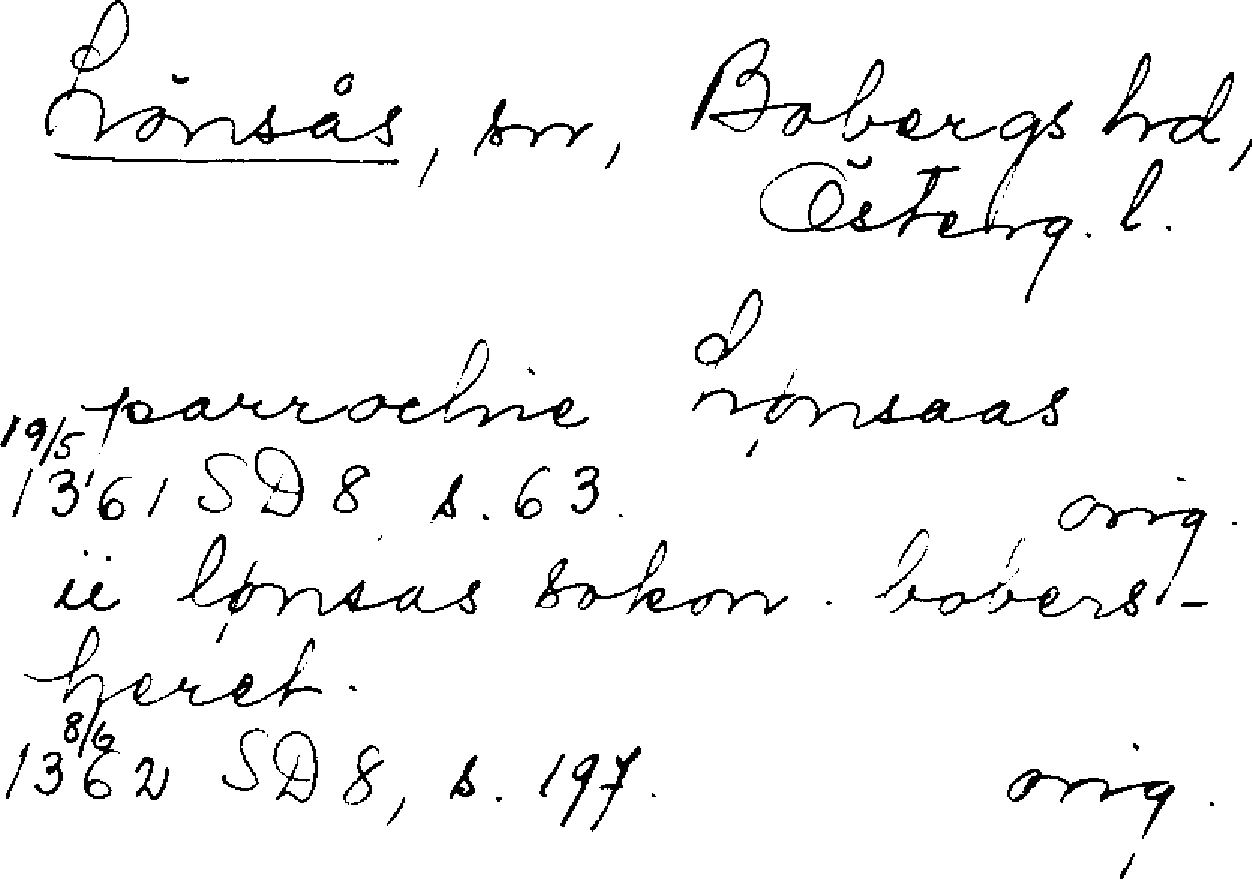 Lönsås, sn, Bobergs hd,
Österg. l.
parrochie Lønsaas
19/5
1361 SD 8 s. 63. orig.
ii lønsas sokon. bobers-
heret.
8/6
1362 SD 8, s. 197. orig.